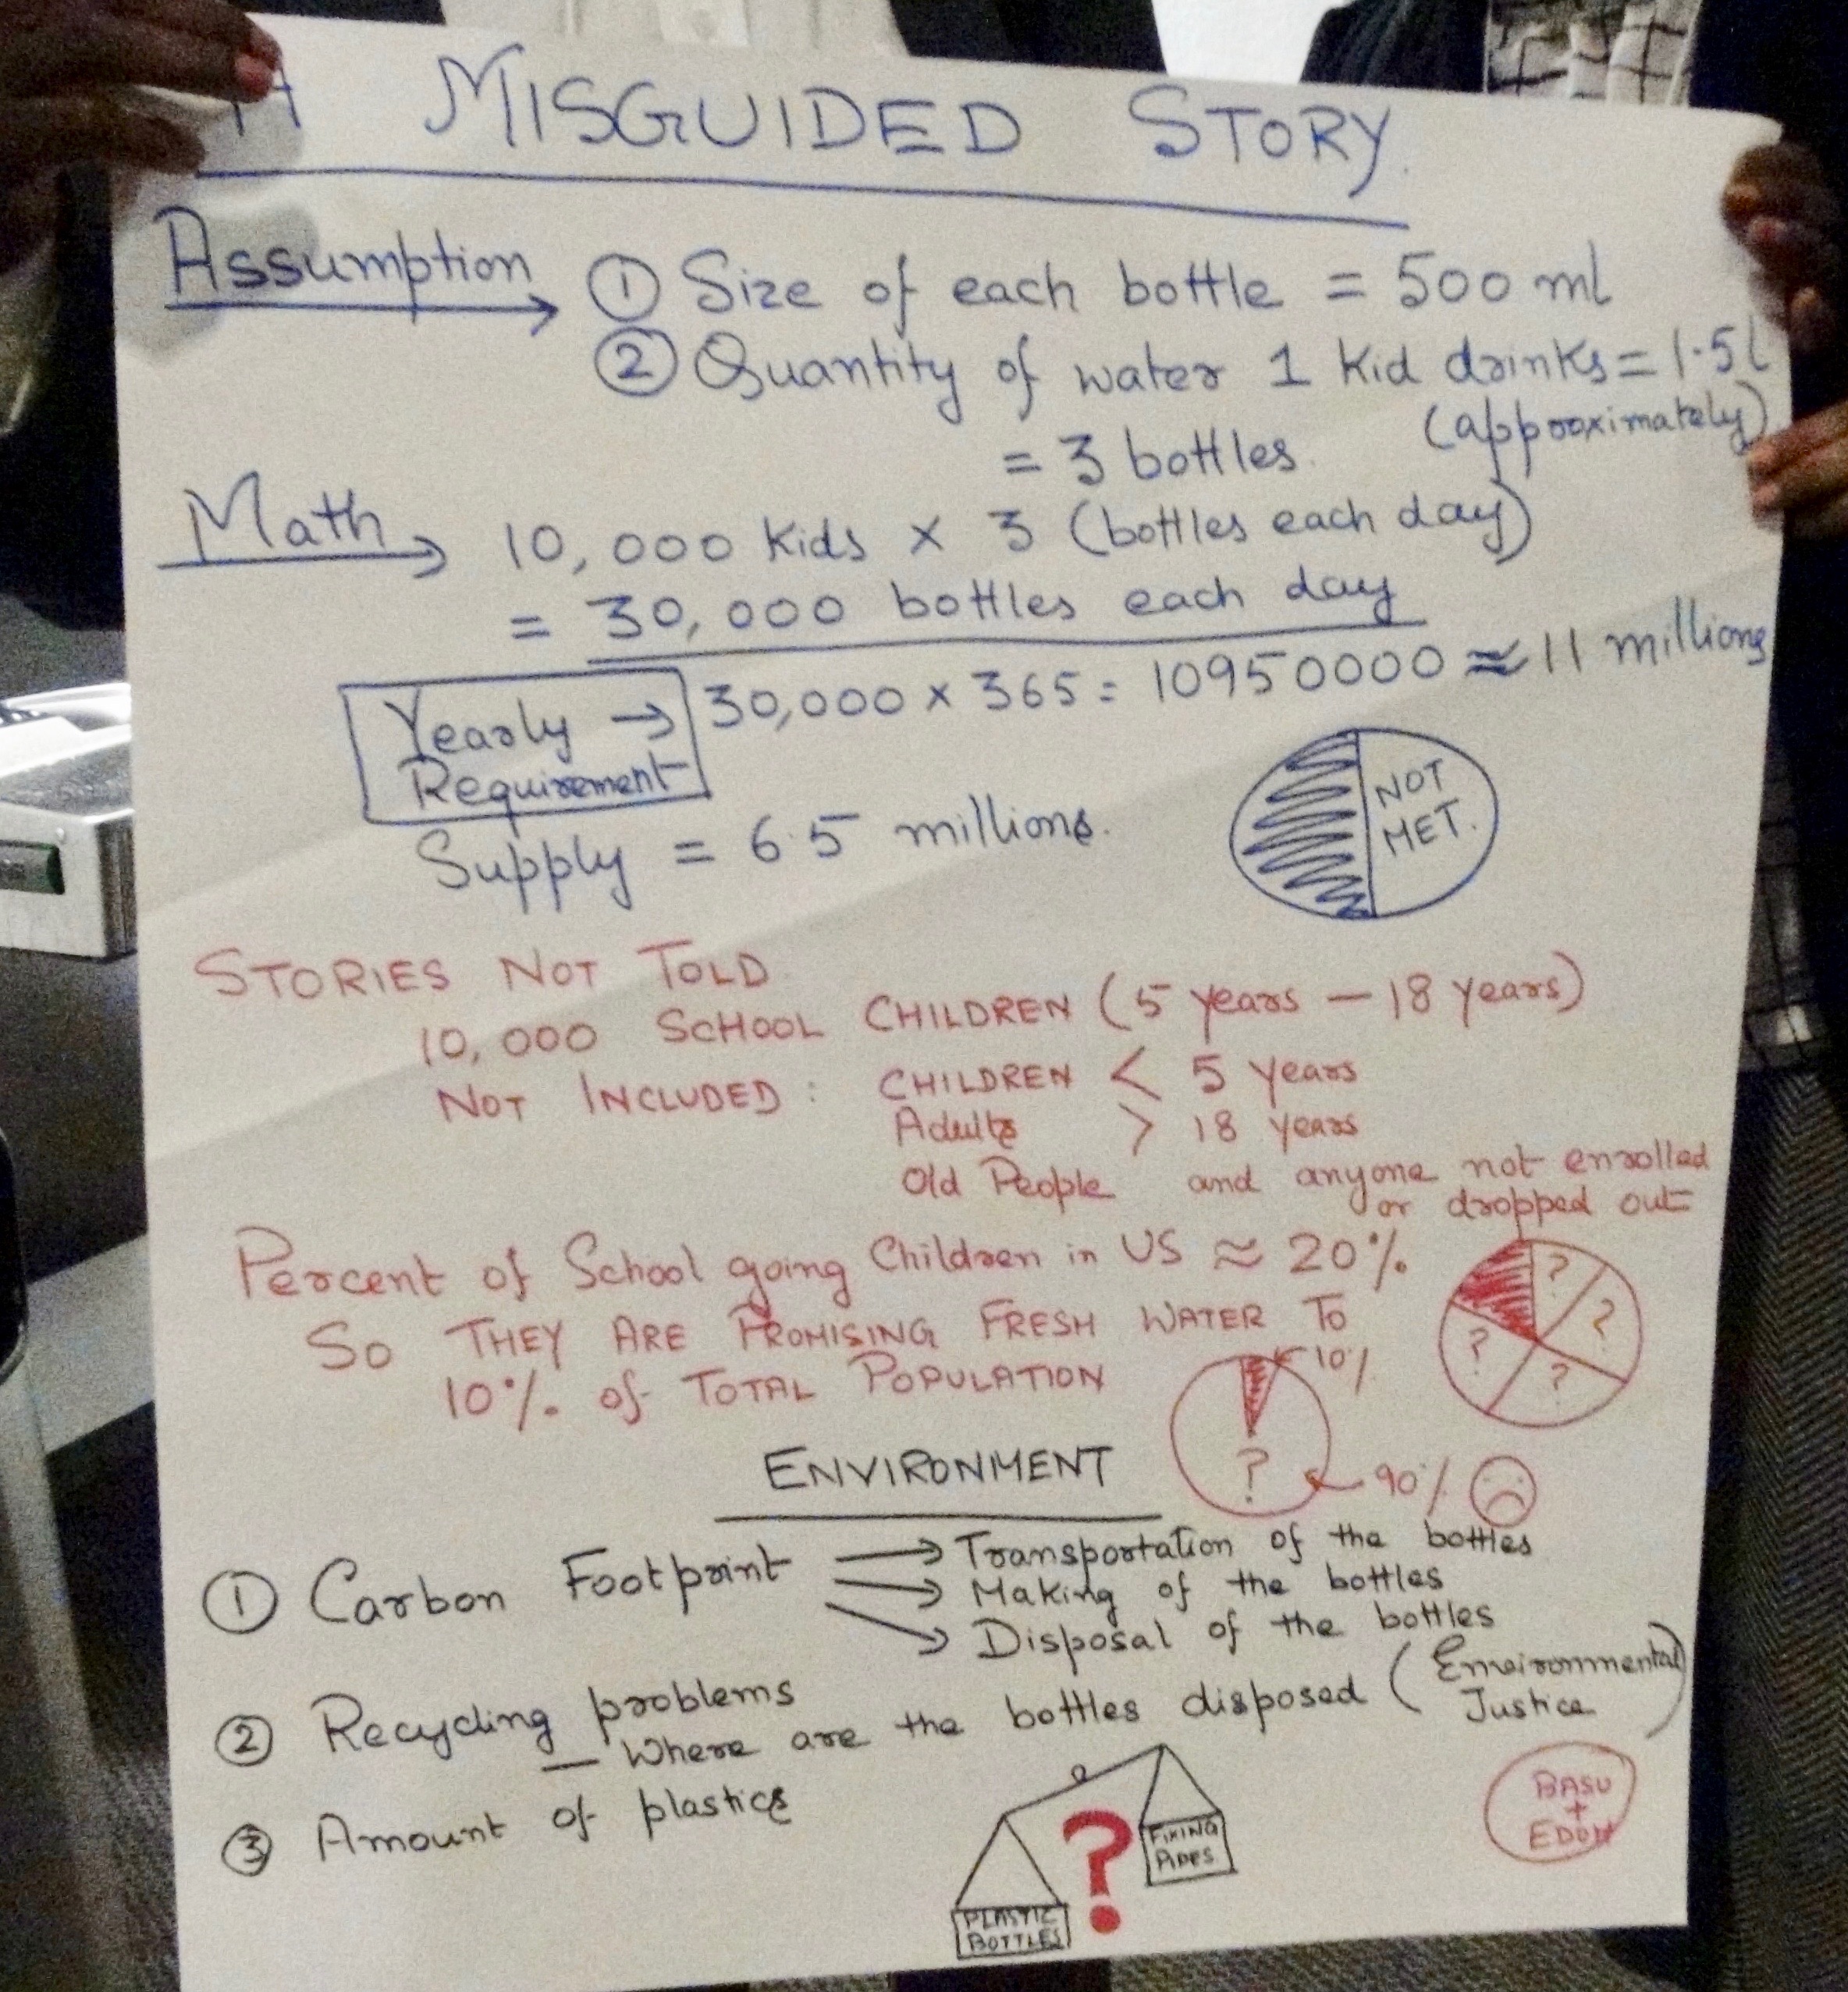 A MISGUIDED STORY.
Assumption → ① Size of each bottle = 500 ml
② Quantity of water 1 kid drinks = 1.5 l
(approximately)
= 3 bottles.
Math → 10,000 kids x 3 (bottles each day)
= 30,000 bottles each day
Yearly → 30,000 x 365 = 10950000 ≈ 11 millions
Requirement
Supply = 6.5 millions.
NOT
MET.
STORIES NOT TOLD
10,000 SCHOOL CHILDREN (5 years — 18 years)
NOT INCLUDED : CHILDREN < 5 years
Adults > 18 years
Old People and anyone not enrolled
or dropped out
Percent of School going Children in US ≈ 20%
? ? ? ?
SO THEY ARE PROMISING FRESH WATER TO
10% of TOTAL POPULATION
10%
?
90%
ENVIRONMENT
① Carbon Footprint → Transportation of the bottles
→ Making of the bottles
→ Disposal of the bottles
② Recycling problems
— Where are the bottles disposed (Environmental
Justice)
③ Amount of plastics
PLASTIC
BOTTLES
?
FIXING
PIPES
BASU
+
EDOM